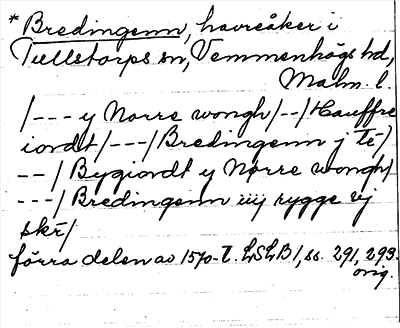 * Bredingenn, havreåker i
Tullstorps sn, Vemmenhögs hd,
Malm. l.
/--- y Norre wongh/--/Hauffre
iordt/---/Bredingenn j
--/ Bygiordt y Nørre wongh/
---/ Bredingenn iiij rygge vj
skr̄/
förra delen av 1570-t. LSLB 1, ss. 291, 293.
orig.